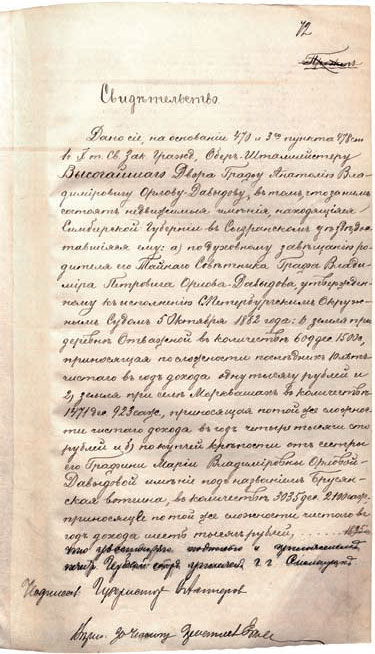 72
Свидѣтельство.
Дано сіе, на основаніе 470 и 3го пункта 478 ст
Х т. Св. Зак. Гражд. Оберъ-Шталмейстеру
Высочайшаго Двора Графу Анатолію Вла-
диміровичу Орлову-Давыдову, въ томъ, что за нимъ
состоятъ недвижимыя имѣнія, находящіяся
Симбирской Губерніи въ Сызранскомъ уѣздѣ до-
ставшіяся ему: а) по духовному завѣщанію ро-
дителя его Тайнаго Совѣтника Графа Влади-
міра Петровича Орлова-Давыдова, утвержден-
ному къ исполненію С.Петербургскимъ Окруж-
нымъ Судомъ 5 Октября 1882 года: 1) земля при
деревнѣ Отважной въ количествѣ 609 дес. 150
приносящая по сложности послѣднихъ 10 лѣтъ
чистаго въ годъ дохода одну тысячу рублей и
2) земля при селѣ Моркваши въ количествѣ
1571 дес 923 саж., приносящая по той же сложнос
ти чистаго дохода въ годъ четыре тысячи сто
рублей и б) по купчей крѣпости отъ сестры
его Графини Маріи Владиміровны Орловой-
Давыдовой имѣніе подъ названіемъ Брусян-
ская вотчина, въ количествѣ 3035 дес. 2100 саж.
приносящее по той же сложности чистаго въ
годъ дохода шесть тысячъ рублей,
что и
печати
Подписалъ Губернаторъ